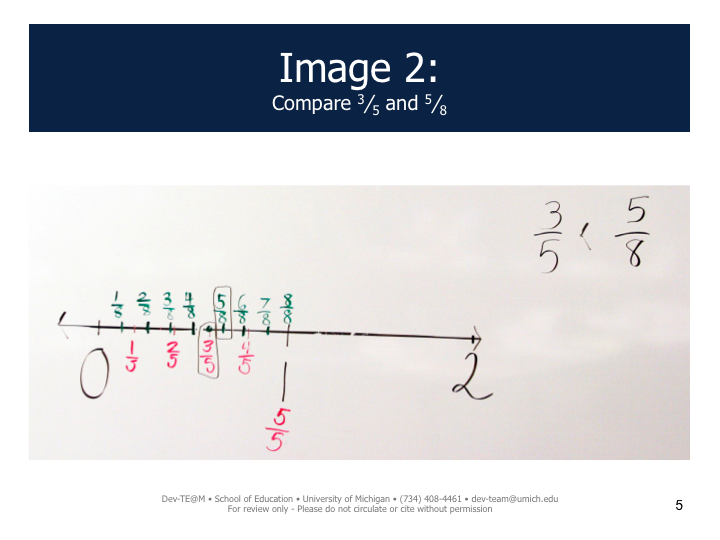 Image 2:
Compare ³⁄₅ and ⁵⁄₈
3/5 < 5/8
1/8 2/8 3/8 4/8 5/8 6/8 7/8 8/8
0 1/5 2/5 3/5 4/5 1 2
5/5
Dev-TE@M • School of Education • University of Michigan • (734) 408-4461 • dev-team@umich.edu
For review only - Please do not circulate or cite without permission
5